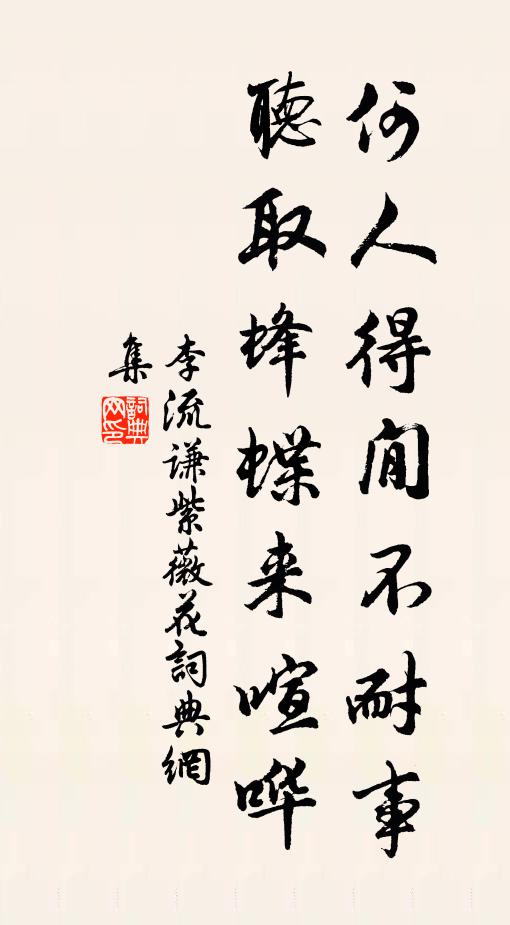 何人得閒不耐事
聽取蜂蝶来喧哗
李流谦紫薇花詞典網
集
詞典网印